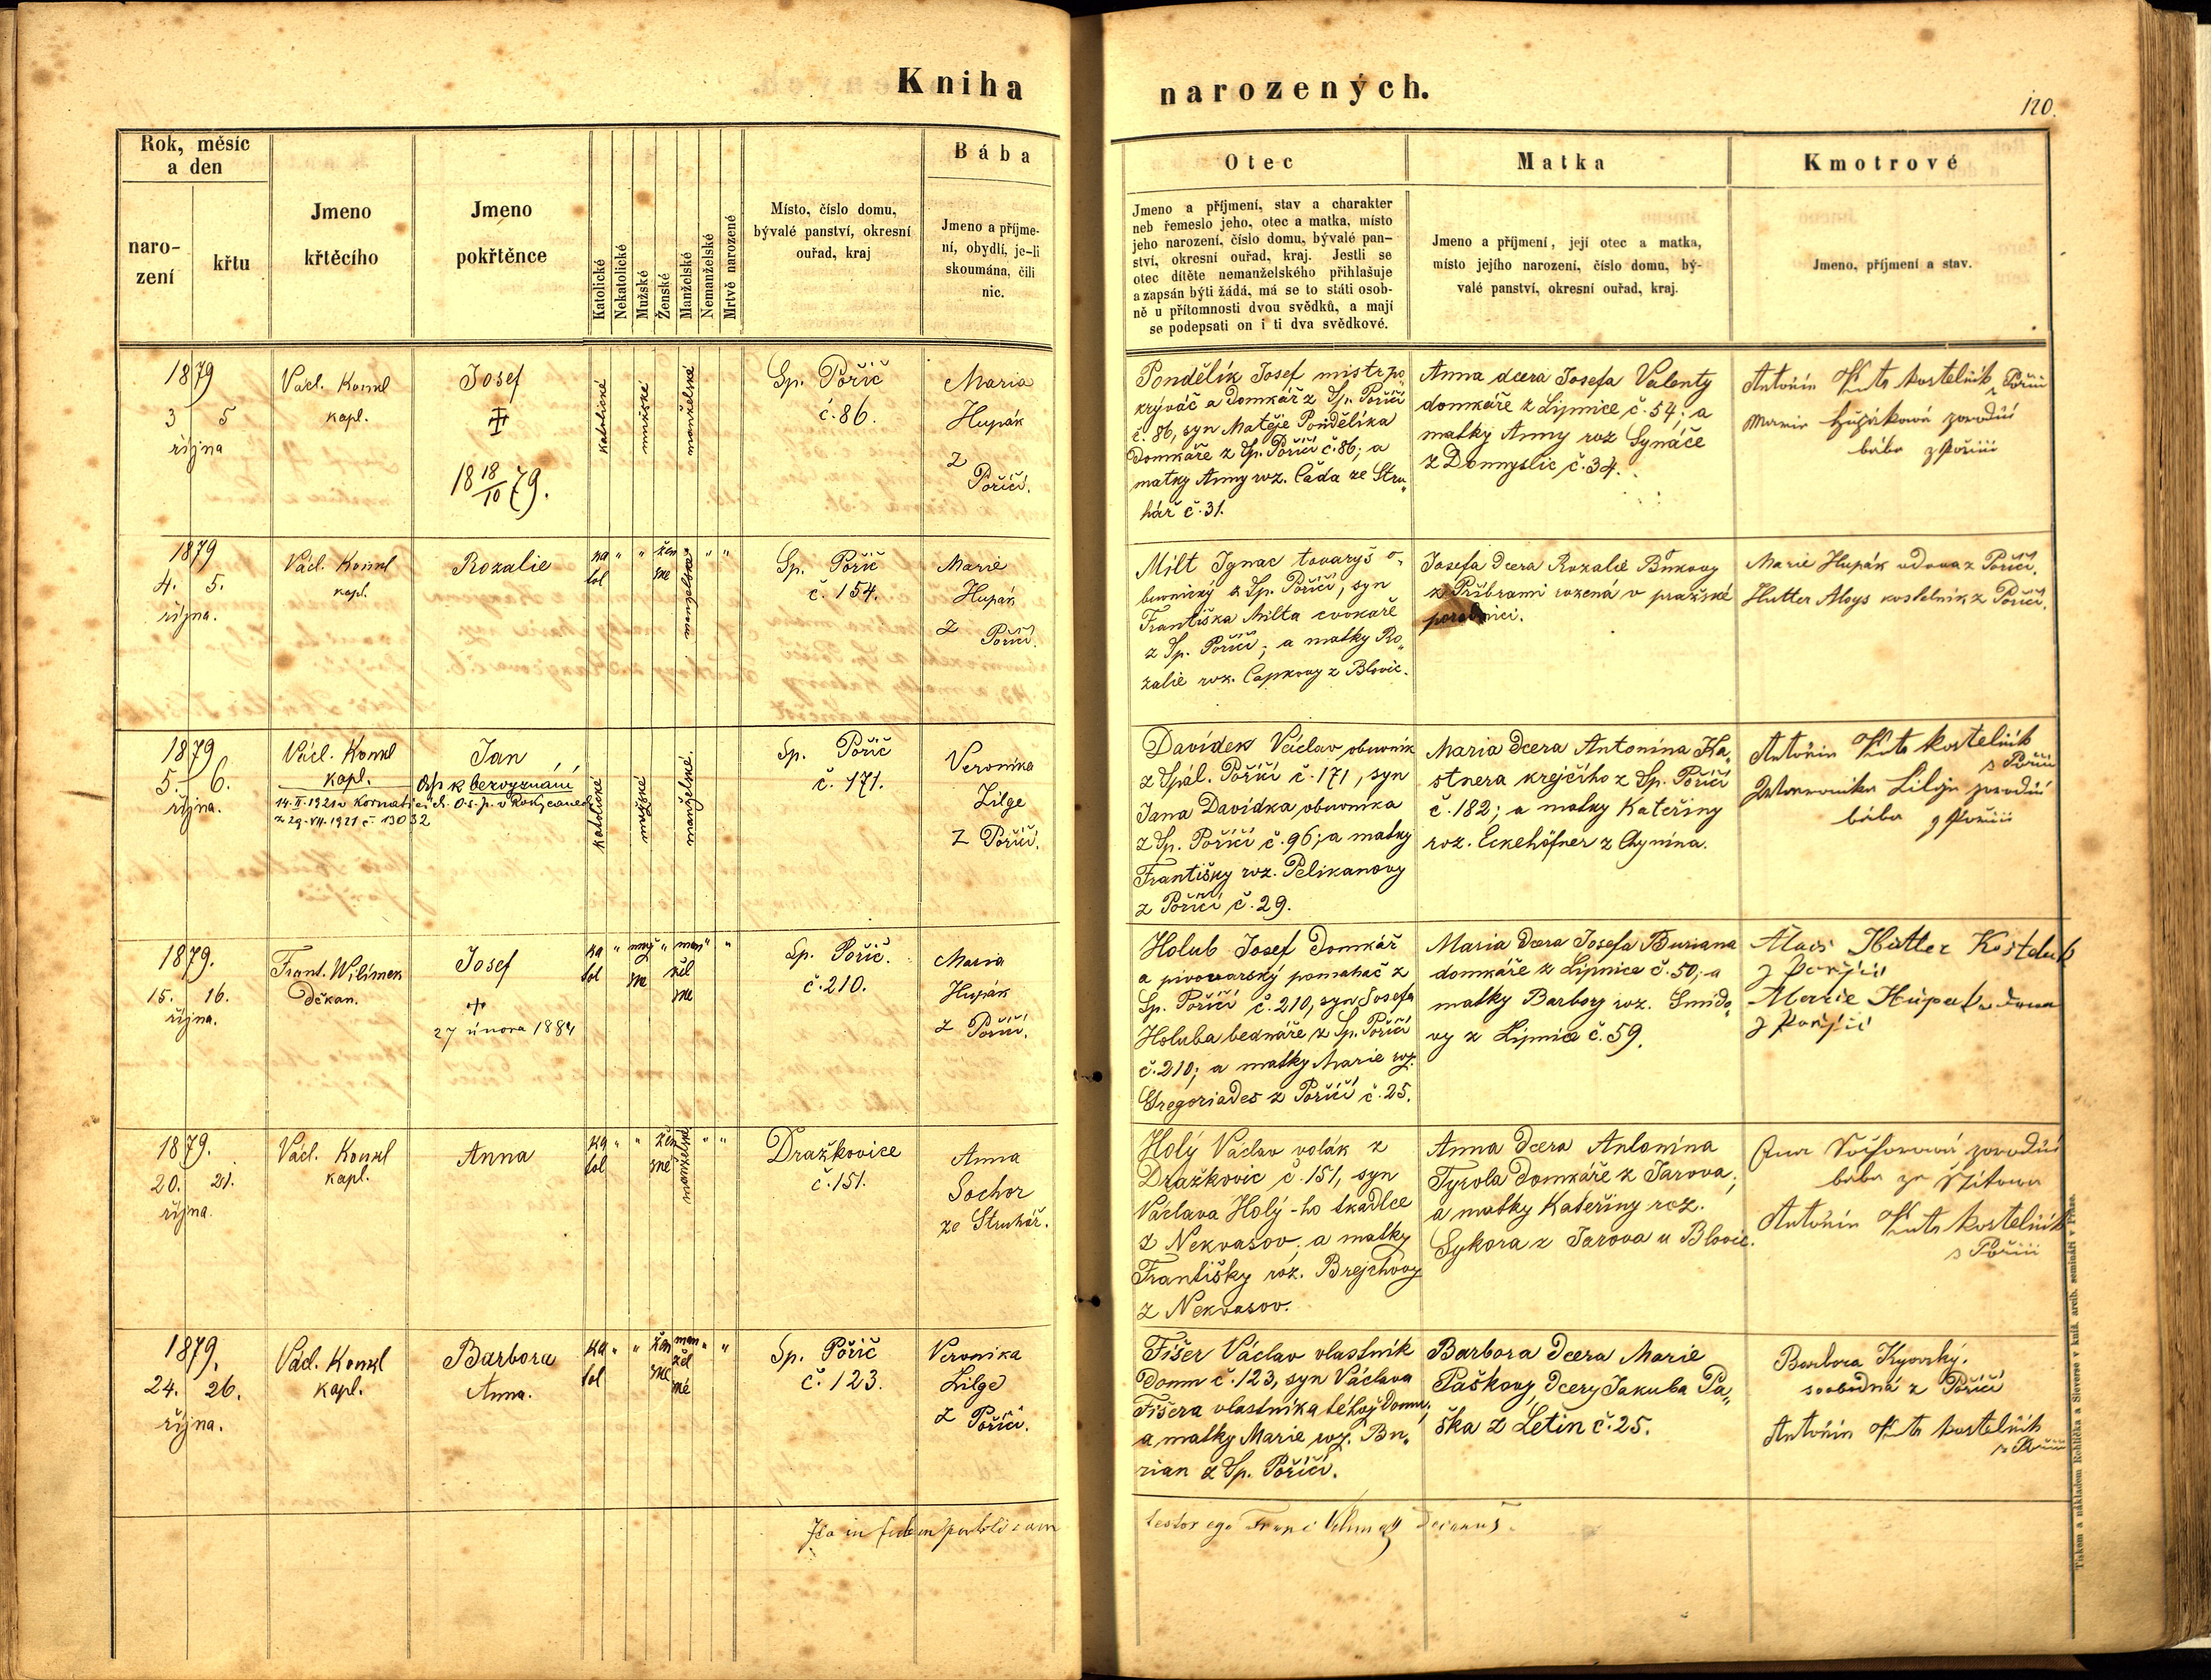 Kniha
narozených.
120.
Rok, měsíc
a den
naro-
zení
křtu
Jmeno
křtěcího
Jmeno
pokřtěnce
Katolické
Nekatolické
Mužské
Ženské
Manželské
Nemanželské
Mrtvě narozené
Místo, číslo domu,
bývalé panství, okresní
ouřad, kraj
Bába
Jmeno a příjme-
ní, obydlí, je-li
skoumána, čili
nic.
Otec
Jmeno a příjmení, stav a charakter
neb řemeslo jeho, otec a matka, místo
jeho narození, číslo domu, bývalé pan-
ství, okresní ouřad, kraj. Jestli se
otec dítěte nemanželského přihlašuje
a zapsán býti žádá, má se to státi osob-
ně u přítomnosti dvou svědků, a mají
se podepsati on i ti dva svědkové.
Matka
Jmeno a příjmení, její otec a matka,
místo jejího narození, číslo domu, bý-
valé panství, okresní ouřad, kraj.
Kmotrové
Jmeno, příjmení a stav.
1879
3 5
října
Václ. Konkl
kapl.
Josef
18 18/10 79.
katolické
mužské
manželské
Sp. Poříč
č. 86.
Maria
Hupák
z
Poříčí.
Pondělík Josef mistr po„
krývač a domkář z Sp. Poříčí
č. 86, syn Matěje Pondělíka
domkáře z Sp. Poříčí č. 86; a
matky Anny roz. Čada ze Stru„
hář č. 31.
Anna dcera Josefa Valenty
domkáře z Lipnice č. 54; a
matky Anny roz Synáče
z Domyslic č. 34.
Antonín kostelník
z Poříčí
Marie Hupáková porodní
bába z Poříčí
1879
4. 5.
října.
Václ. Konkl
kapl.
Rozalie
ka " " žen " "
tol ské
manželské
Sp. Poříč
č. 154.
Marie
Hupák
z
Poříčí.
Milt Ignac tovaryš o„
buvnický z Sp. Poříčí, syn
Františka Milta cvokaře
z Sp. Poříčí; a matky Ro„
zalie roz. Čapkovy z Blovic.
Josefa dcera Rozalie
z Příbrami rozená v pražské
porodnici.
Marie Hupák vdova z Poříčí.
Hutter Aloys kostelník z Poříčí.
1879
5. 6.
října.
Václ. Konkl
kapl.
Jan
k bezvyznání
14. II. 1921 v
z 29. VII. 1921 č. 13032
katolické
mužské
manželské.
Sp. Poříč
č. 171.
Veronika
Lilge
z Poříčí.
Davídek Václav obuvník
z Spál. Poříčí č. 171, syn
Jana Davídka obuvníka
z Sp. Poříčí č. 96; a matky
Františky roz. Pelikanovy
z Poříčí č. 29.
Maria dcera Antonína Ka„
stnera krejčího z Sp. Poříčí
č. 182; a matky Kateřiny
roz. Eckehöfner z Chynína.
Antonín kostelník
z Poříčí
Lilge porodní
bába z Poříčí
1879.
15. 16.
října.
Frant. Wilímek
děkan.
Josef
27 února 1884
ka " muž " man " "
tol ské žel
ské
Sp. Poříč.
č. 210.
Maria
Hupák
z Poříčí.
Holub Josef domkář
a pivovarský pomahač z
Sp. Poříčí č. 210, syn Josefa
Holuba bednáře z Sp. Poříčí
č. 210; a matky Marie roz.
Gregoriades z Poříčí č. 25.
Maria dcera Josefa Buriana
domkáře z Lipnice č. 50; a
matky Barbory roz. Šmido„
vy z Lipnice č. 59.
Alois Hutter
z Poříčí
Marie Hupak vdova
z Poříčí
1879.
20. 21.
října.
Václ. Konkl
kapl.
Anna
ka " " žen " "
tol ské
manželské
Dražkovice
č. 151.
Anna
Sochor
ze Struhář.
Holý Václav volák z
Dražkovic č. 151, syn
Václava Holý-ho tkadlce
z Nekvasov, a matky
Františky roz. Brejchovy
z Nekvasov.
Anna dcera Antonína
Tyrola domkáře z Jarova;
a matky Kateřiny roz.
Sykora z Jarova u Blovic.
porodní
bába ze
Antonín kostelník
z Poříčí
1879.
24. 26.
října.
Václ. Konkl
kapl.
Barbora
Anna.
ka " " žen man " "
tol ské žel
ské
Sp. Poříč
č. 123.
Veronika
Lilge
z Poříčí.
Fišer Václav vlastník
domu č. 123, syn Václava
Fišera vlastníka téhož domu;
a matky Marie roz. Bu„
rian z Sp. Poříčí.
Barbora dcera Marie
Paškovy, dcery Jakuba Pa„
ška z Letin č. 25.
Barbora Kyovský.
svobodná z Poříčí
Antonín kostelník
z Poříčí
Ita in fidem publicam
testor ego Franc decanus.
Tiskem a nákladem Rohlíčka a Sieverse v kníž. arcib. semináři v Praze.